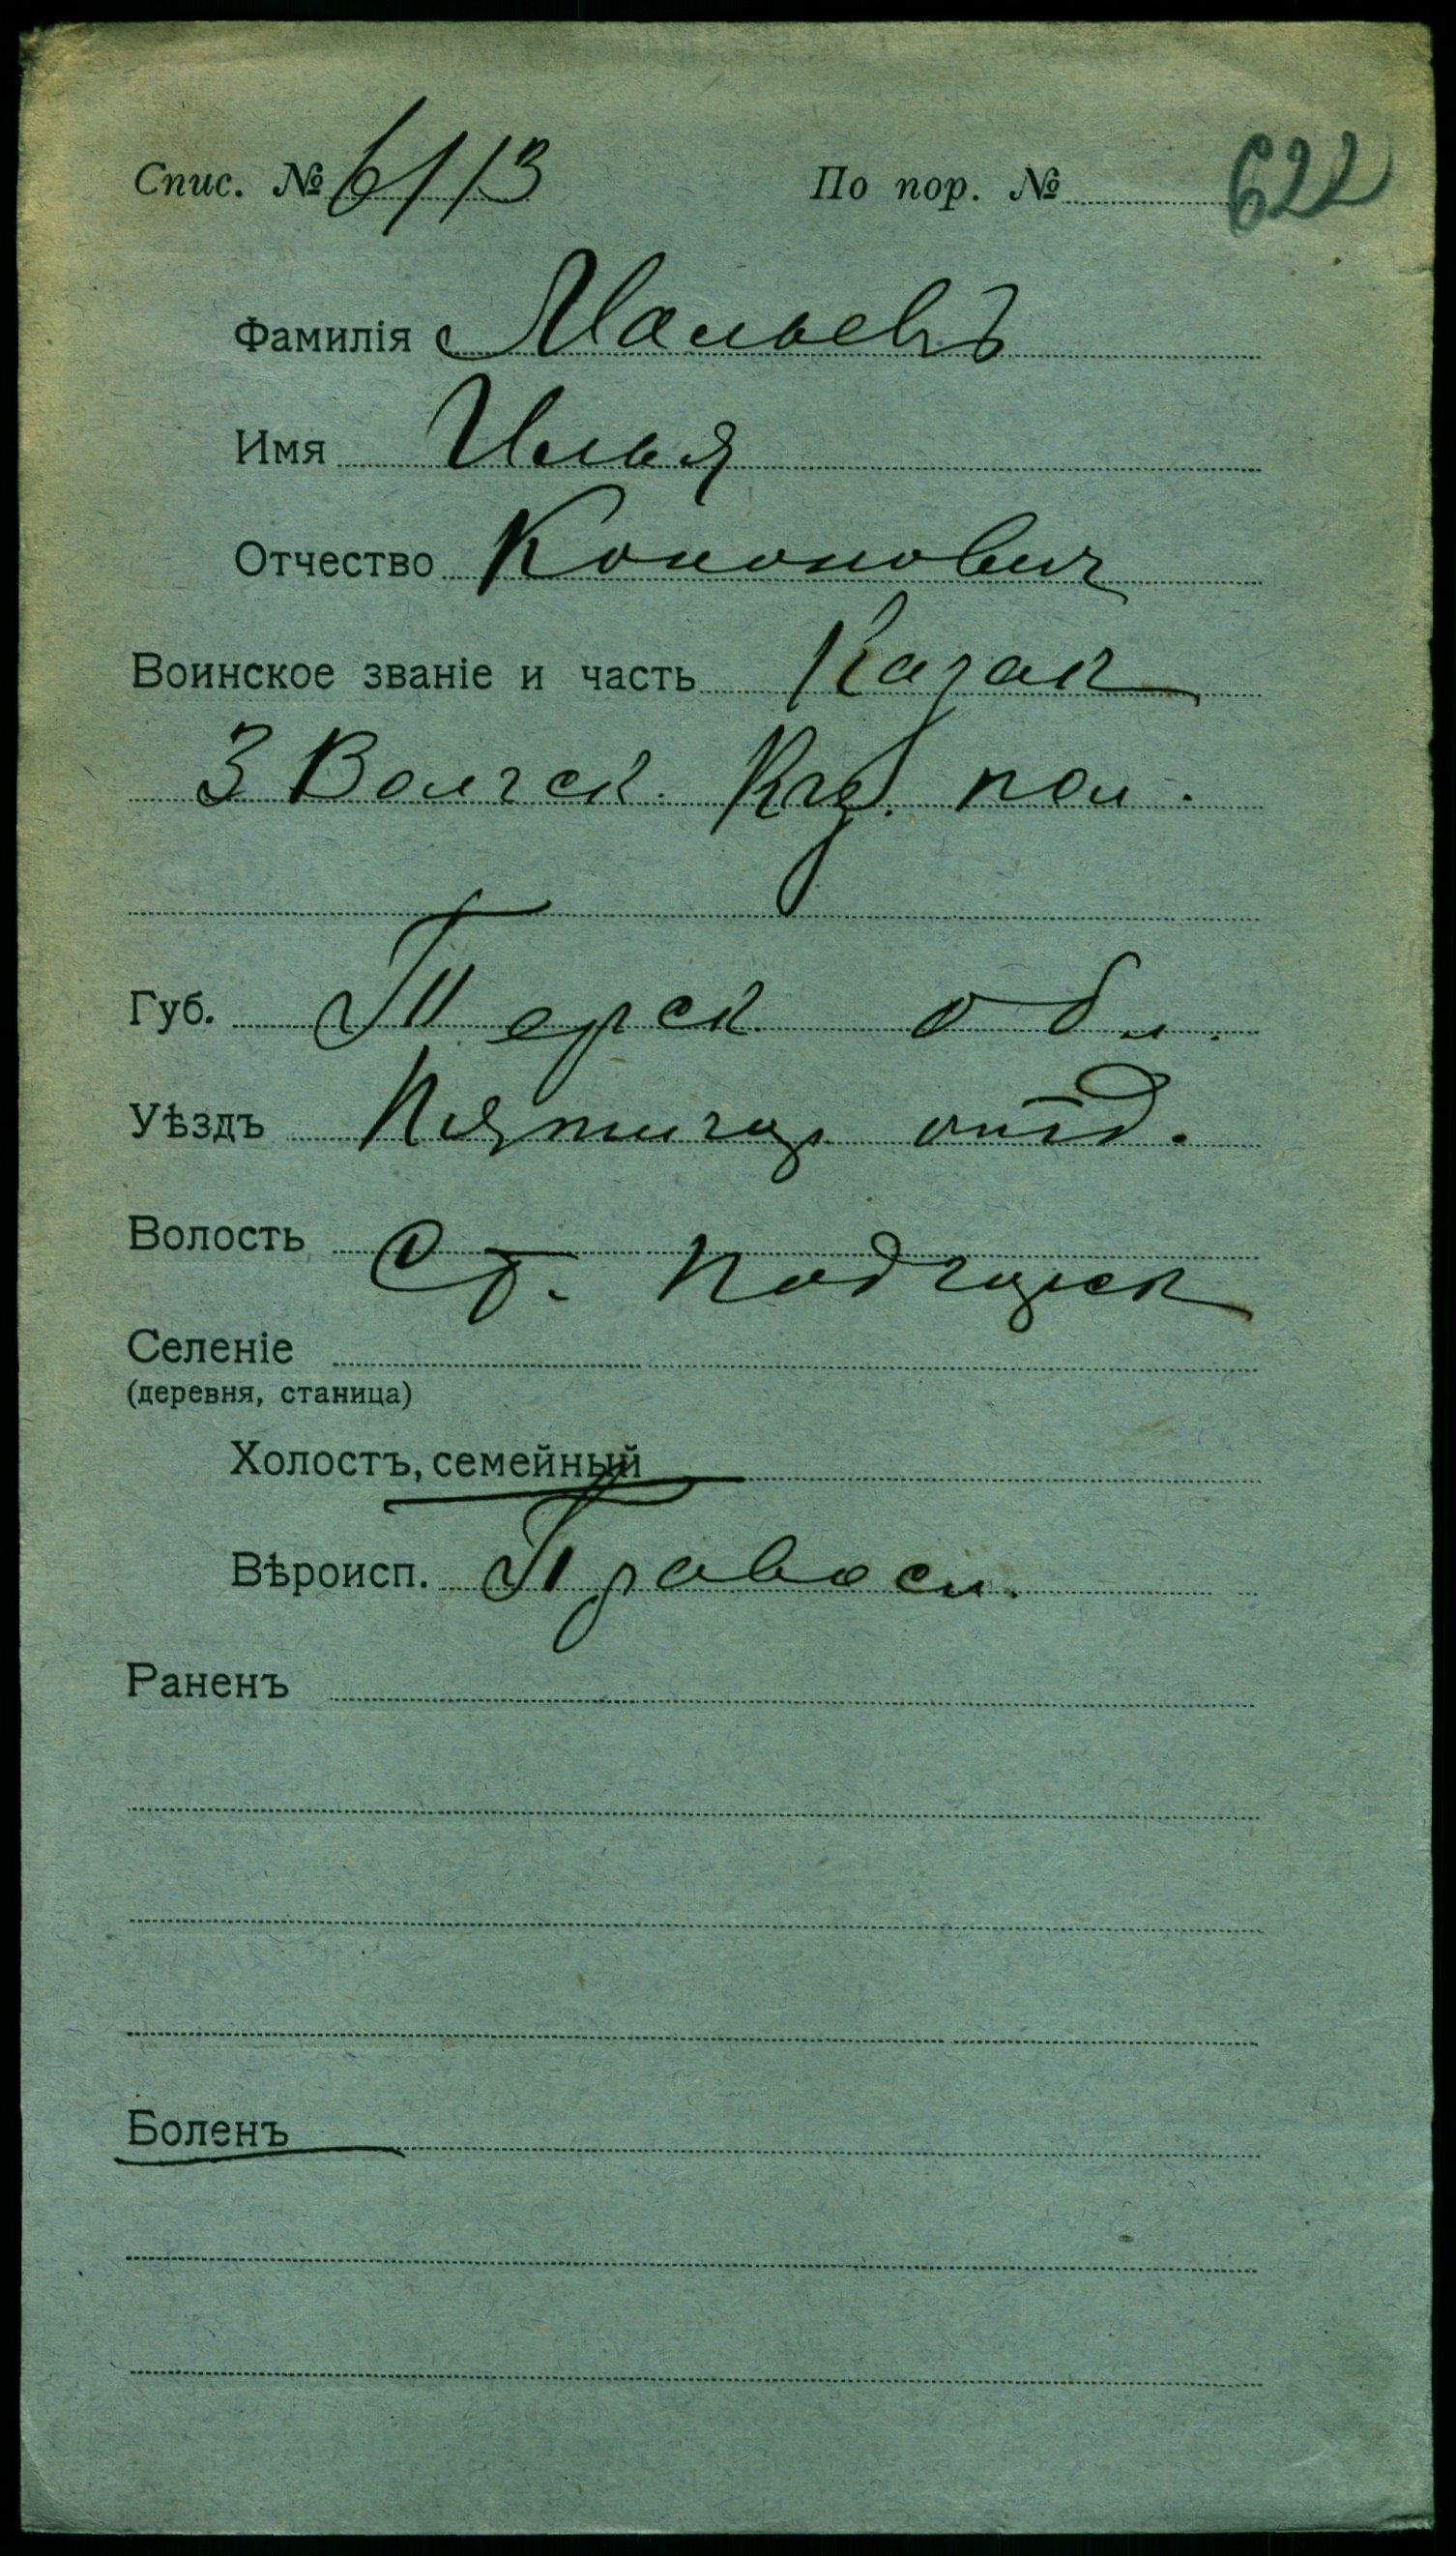 Спис. № 6113 По пор. № 622
Фамилія Мальевъ
Имя Илья
Отчество Кононович
Воинское званіе и часть Казак
3 Волгск. пол.
Губ. Терск обл.
Уѣздъ Пятигор. отд.
Волость Ст. Подгорск
Селеніе
(деревня, станица)
Холостъ, семейный
Вѣроисп. Правосл.
Раненъ
Боленъ